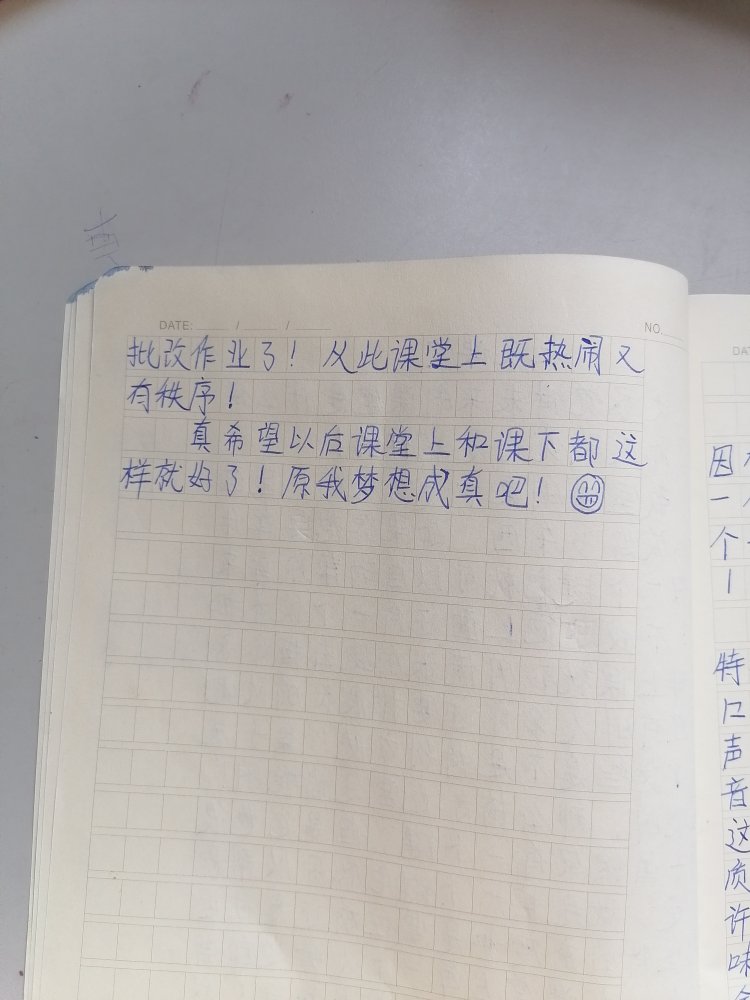 DATE: / /
NO.
批改作业了！从此课堂上既热闹又
有秩序！
真希望以后课堂上和课下都这
样就好了！原我梦想成真吧！
DA
因
一
个
特
口
声
音
这
质
许
味